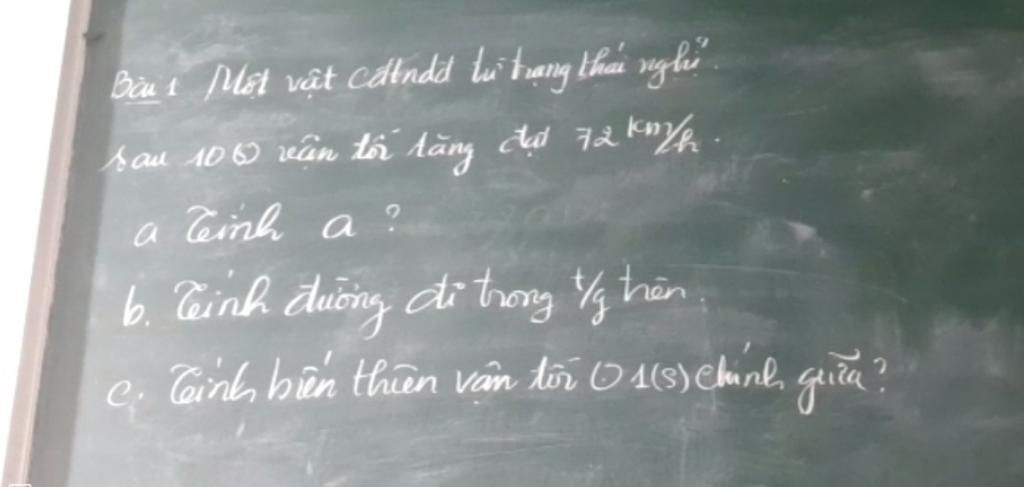 Bài 1 Một vật cđtndđ từ trạng thái nghỉ.
sau 10(s) vận tốc tăng đạt 72 km/h.
a Tính a?
b. Tính đường đi trong t/g trên.
c. Tính biến thiên vận tốc 1(s) chính giữa?